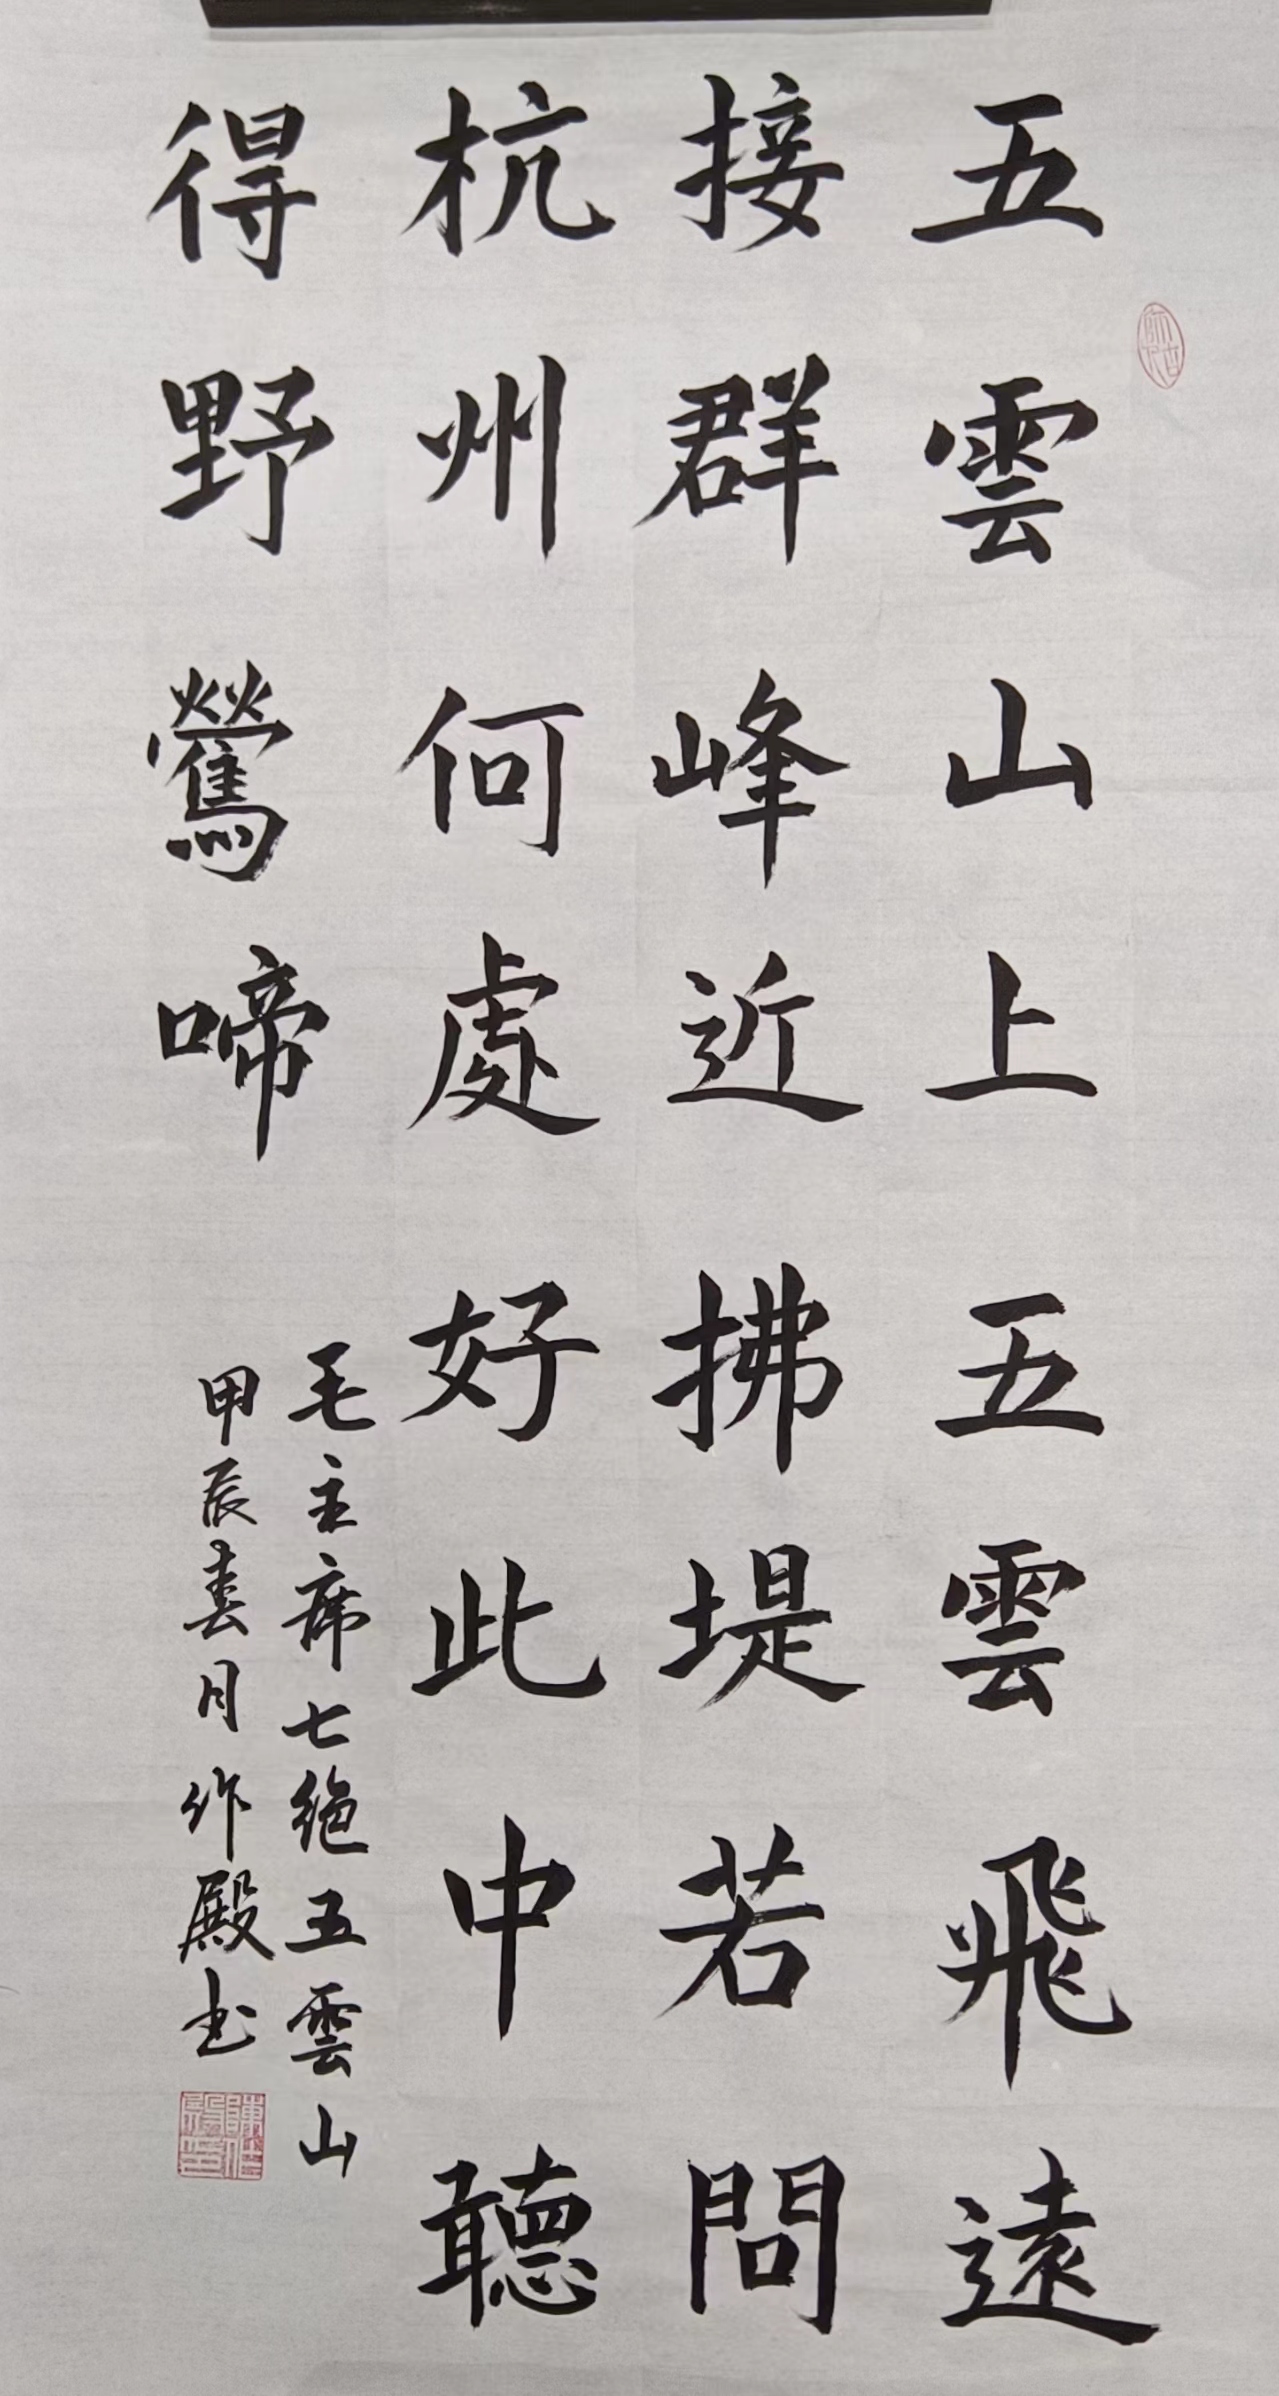 五雲山上五雲飛遠
接群峰近拂堤若問
杭州何處好此中聽
得野鶯啼
毛主席七绝五雲山
甲辰春月作殿书